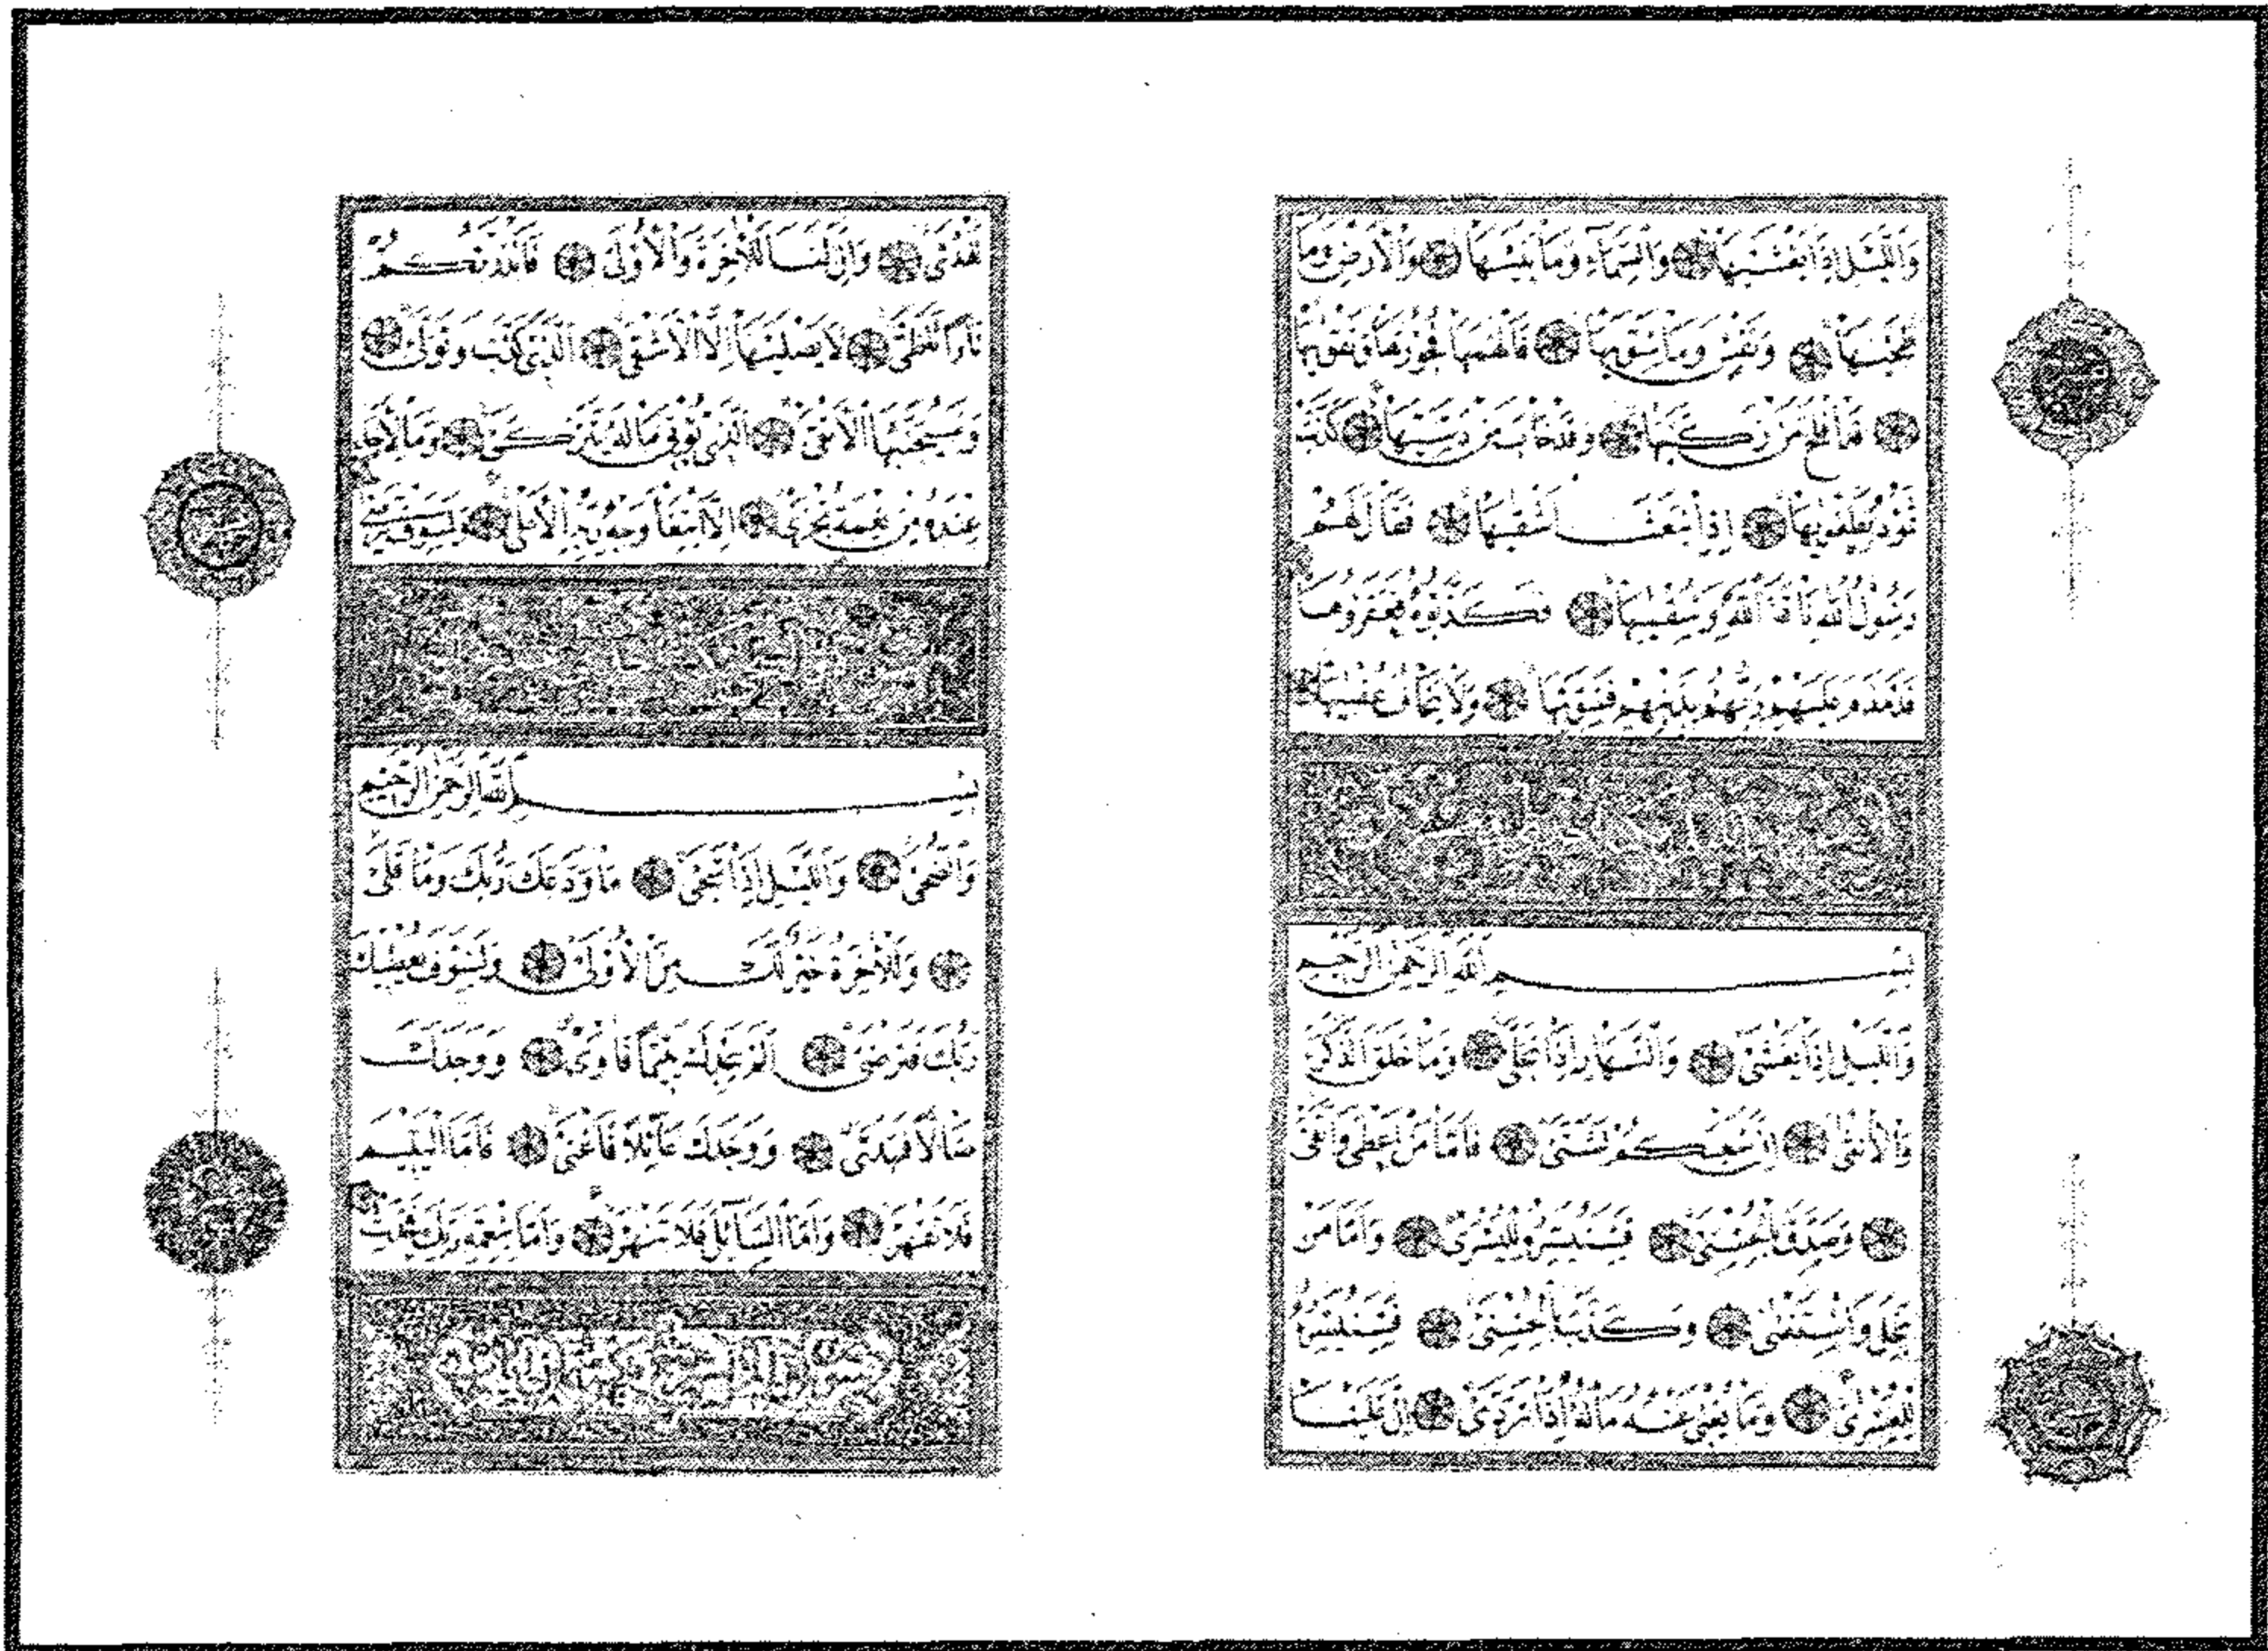 وَاللَّيْلِ إِذَا يَغْشَيٰهَا وَالسَّمَاءِ وَمَا بَنَيٰهَا وَالْاَرْضِ وَمَا
طَحٰيهَا وَنَفْسٍ وَمَا سَوّٰيهَا فَاَلْهَمَهَا فُجُورَهَا وَتَقْوٰيهَا
قَدْ اَفْلَحَ مَنْ زَكّٰيهَا وَقَدْ خَابَ مَنْ دَسّٰيهَا كَذَّبَتْ
ثَمُودُ بِطَغْوٰيهَا اِذِ انْبَعَثَ اَشْقٰيهَا فَقَالَ لَهُمْ
رَسُولُ اللّٰهِ نَاقَةَ اللّٰهِ وَسُقْيٰهَا فَكَذَّبُوهُ فَعَقَرُوهَا
فَدَمْدَمَ عَلَيْهِمْ رَبُّهُمْ بِذَنْبِهِمْ فَسَوّٰيهَا وَلَا يَخَافُ عُقْبٰيهَا
بِسْمِ اللّٰهِ الرَّحْمٰنِ الرَّحِيمِ
وَاللَّيْلِ اِذَا يَغْشٰى وَالنَّهَارِ اِذَا تَجَلّٰى وَمَا خَلَقَ الذَّكَرَ
وَالْاُنْثٰى اِنَّ سَعْيَكُمْ لَشَتّٰى فَاَمَّا مَنْ اَعْطٰى وَاتَّقٰى
وَصَدَّقَ بِالْحُسْنٰى فَسَنُيَسِّرُهُ لِلْيُسْرٰى وَاَمَّا مَنْ
بَخِلَ وَاسْتَغْنٰى وَكَذَّبَ بِالْحُسْنٰى فَسَنُيَسِّرُهُ
لِلْعُسْرٰى وَمَا يُغْنِي عَنْهُ مَالُهُ اِذَا تَرَدّٰى اِنَّ عَلَيْنَا
لَلْهُدٰى وَاِنَّ لَنَا لَلْاٰخِرَةَ وَالْاُولٰى فَاَنْذَرْتُكُمْ
نَارًا تَلَظّٰى لَا يَصْلٰيهَا اِلَّا الْاَشْقٰى الَّذِي كَذَّبَ وَتَوَلّٰى
وَسَيُجَنَّبُهَا الْاَتْقٰى الَّذِي يُؤْتِي مَالَهُ يَتَزَكّٰى وَمَا لِاَحَدٍ
عِنْدَهُ مِنْ نِعْمَةٍ تُجْزٰى اِلَّا ابْتِغَاءَ وَجْهِ رَبِّهِ الْاَعْلٰى وَلَسَوْفَ يَرْضٰى
بِسْمِ اللّٰهِ الرَّحْمٰنِ الرَّحِيمِ
وَالضُّحٰى وَاللَّيْلِ اِذَا سَجٰى مَا وَدَّعَكَ رَبُّكَ وَمَا قَلٰى
وَلَلْاٰخِرَةُ خَيْرٌ لَكَ مِنَ الْاُولٰى وَلَسَوْفَ يُعْطِيكَ
رَبُّكَ فَتَرْضٰى اَلَمْ يَجِدْكَ يَتِيمًا فَاٰوٰى وَوَجَدَكَ
ضَالًّا فَهَدٰى وَوَجَدَكَ عَائِلًا فَاَغْنٰى فَاَمَّا الْيَتِيمَ
فَلَا تَقْهَرْ وَاَمَّا السَّائِلَ فَلَا تَنْهَرْ وَاَمَّا بِنِعْمَةِ رَبِّكَ فَحَدِّثْ